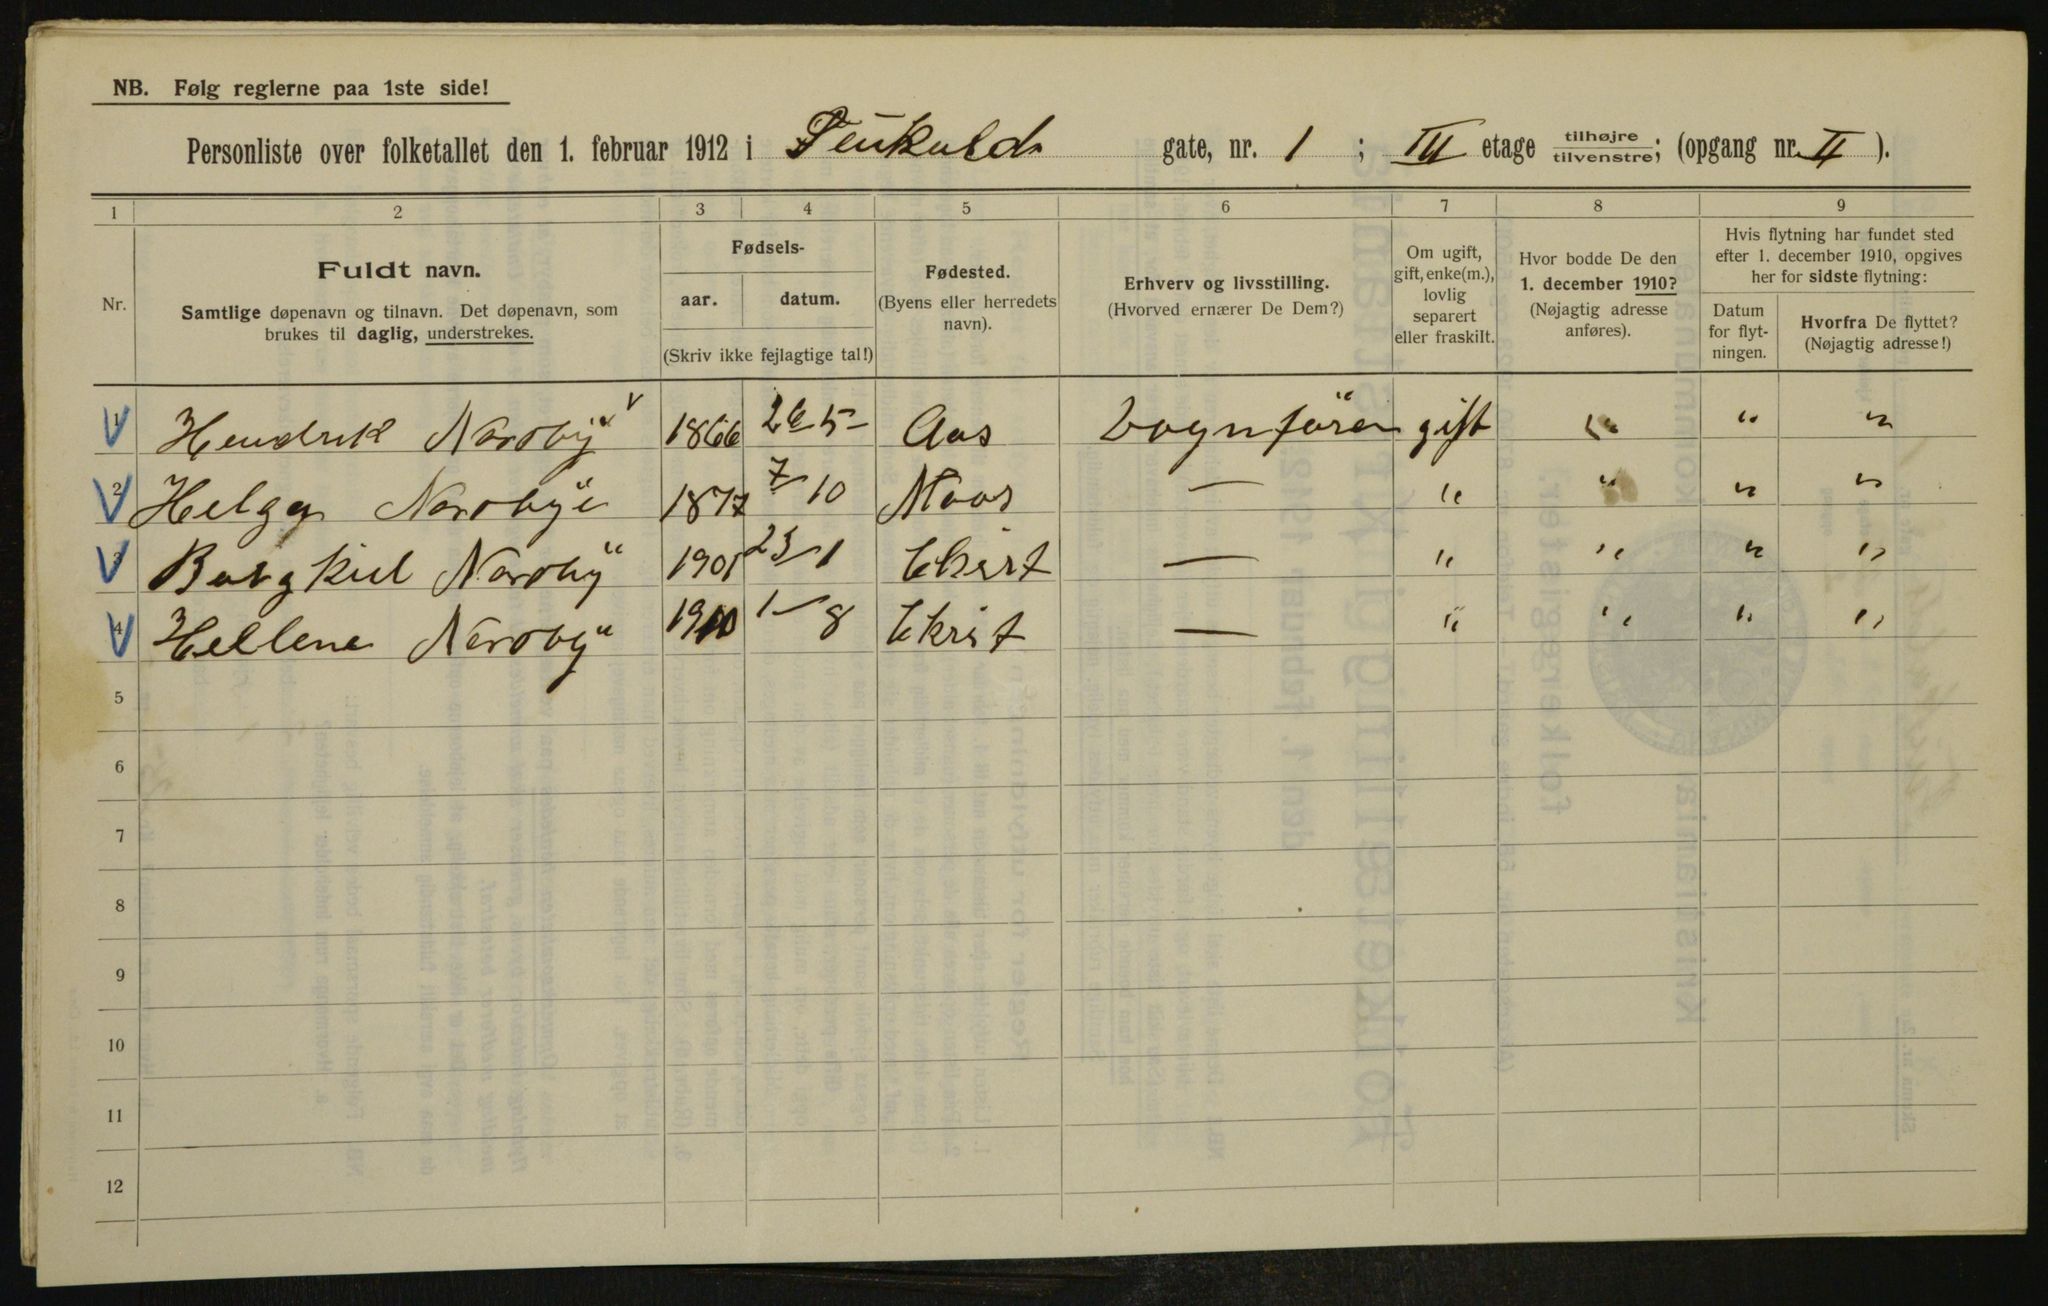 NB. Følg reglerne paa 1ste side!
Personliste over folketallet den 1. februar 1912 i gate, nr. 1 ; III etage tilhøjre tilvenstre; (opgang nr. II ).
1 2 3 4 5 6 7 8 9
Nr.
Fuldt navn.
Samtlige døpenavn og tilnavn. Det døpenavn, som
brukes til daglig, understrekes.
Fødsels-
aar. datum.
(Skriv ikke fejlagtige tal!)
Fødested.
(Byens eller herredets
navn).
Erhverv og livsstilling.
(Hvorved ernærer De Dem?)
Om ugift,
gift, enke(m.),
lovlig
separert
eller fraskilt.
Hvor bodde De den
1. december 1910?
(Nøjagtig adresse
anføres).
Hvis flytning har fundet sted
efter 1. december 1910, opgives
her for sidste flytning:
Datum
for flyt-
ningen.
Hvorfra De flyttet?
(Nøjagtig adresse!)
1 Hendrik Nordby 1866 26 5 Aas Vognfører gift " " "
2 Helga Nordbye 1877 7/10 Moss — " " " "
3 Nordby 1901 23/1 — " " " "
4 Hellene Nordby 1910 1/8 — " " " "
5
6
7
8
9
10
11
12